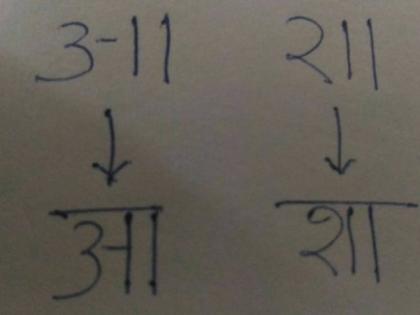 3-11 211
आ शा